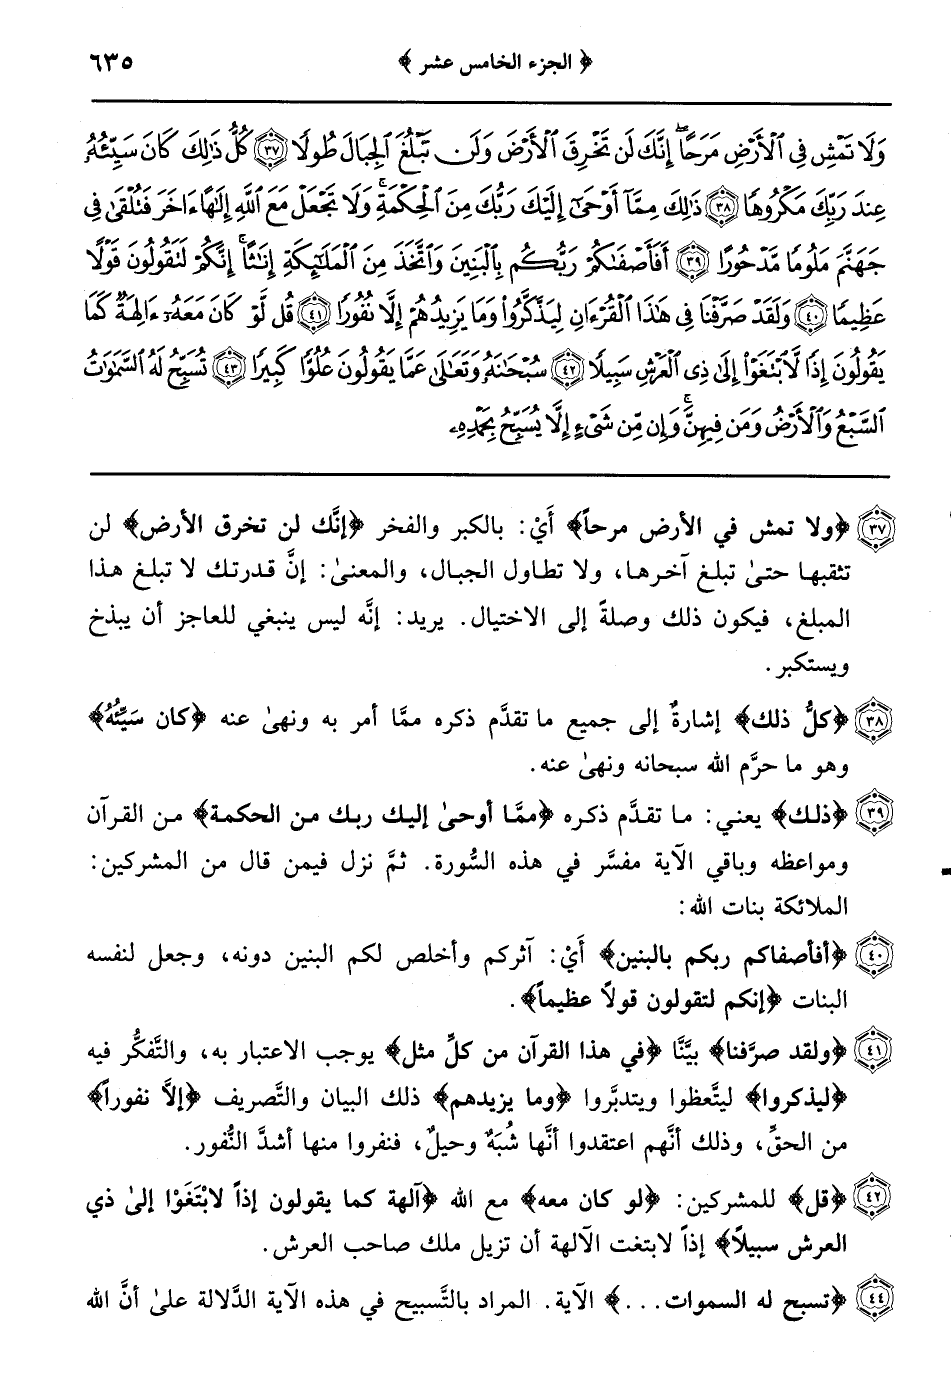 ﴿ الجزء الخامس عشر ﴾ ٦٣٥
وَلَا تَمْشِ فِي ٱلْأَرْضِ مَرَحًاۖ إِنَّكَ لَن تَخْرِقَ ٱلْأَرْضَ وَلَن تَبْلُغَ ٱلْجِبَالَ طُولًا ٣٧ كُلُّ ذَٰلِكَ كَانَ سَيِّئُهُۥ
عِندَ رَبِّكَ مَكْرُوهًا ٣٨ ذَٰلِكَ مِمَّآ أَوْحَىٰٓ إِلَيْكَ رَبُّكَ مِنَ ٱلْحِكْمَةِۗ وَلَا تَجْعَلْ مَعَ ٱللَّهِ إِلَٰهًا ءَاخَرَ فَتُلْقَىٰ فِي
جَهَنَّمَ مَلُومًا مَّدْحُورًا ٣٩ أَفَأَصْفَىٰكُمْ رَبُّكُم بِٱلْبَنِينَ وَٱتَّخَذَ مِنَ ٱلْمَلَٰٓئِكَةِ إِنَٰثًاۚ إِنَّكُمْ لَتَقُولُونَ قَوْلًا
عَظِيمًا ٤٠ وَلَقَدْ صَرَّفْنَا فِي هَٰذَا ٱلْقُرْءَانِ لِيَذَّكَّرُوا۟ وَمَا يَزِيدُهُمْ إِلَّا نُفُورًا ٤١ قُل لَّوْ كَانَ مَعَهُۥٓ ءَالِهَةٌ كَمَا
يَقُولُونَ إِذًا لَّٱبْتَغَوْا۟ إِلَىٰ ذِي ٱلْعَرْشِ سَبِيلًا ٤٢ سُبْحَٰنَهُۥ وَتَعَٰلَىٰ عَمَّا يَقُولُونَ عُلُوًّا كَبِيرًا ٤٣ تُسَبِّحُ لَهُ ٱلسَّمَٰوَٰتُ
ٱلسَّبْعُ وَٱلْأَرْضُ وَمَن فِيهِنَّۚ وَإِن مِّن شَيْءٍ إِلَّا يُسَبِّحُ بِحَمْدِهِۦ
٣٧ ﴿ولا تمش في الأرض مرحاً﴾ أَيْ: بالكبر والفخر ﴿إنَّك لن تخرق الأرض﴾ لن
تثقبها حتىٰ تبلغ آخرها، ولا تطاول الجبال، والمعنىٰ: إنَّ قدرتك لا تبلغ هذا
المبلغ، فيكون ذلك وصلةً إلى الاختيال. يريد: إنَّه ليس ينبغي للعاجز أن يبذخ
ويستكبر.
٣٨ ﴿كلُّ ذلك﴾ إشارةٌ إلى جميع ما تقدَّم ذكره ممَّا أمر به ونهىٰ عنه ﴿كان سَيِّئُهُ﴾
وهو ما حرَّم الله سبحانه ونهىٰ عنه.
٣٩ ﴿ذلك﴾ يعني: ما تقدَّم ذكره ﴿ممَّا أوحىٰ إليك ربك من الحكمة﴾ من القرآن
ومواعظه وباقي الآية مفسَّر في هذه السُّورة. ثمَّ نزل فيمن قال من المشركين:
الملائكة بنات الله:
٤٠ ﴿أفأصفاكم ربكم بالبنين﴾ أَيْ: آثركم وأخلص لكم البنين دونه، وجعل لنفسه
البنات ﴿إنكم لتقولون قولاً عظيماً﴾.
٤١ ﴿ولقد صرَّفنا﴾ بيَّنَّا ﴿في هذا القرآن من كلِّ مثل﴾ يوجب الاعتبار به، والتَّفكُّر فيه
﴿ليذكروا﴾ ليتَّعظوا ويتدبَّروا ﴿وما يزيدهم﴾ ذلك البيان والتَّصريف ﴿إلَّا نفوراً﴾
من الحقِّ، وذلك أنَّهم اعتقدوا أنَّها شُبَهٌ وحيلٌ، فنفروا منها أشدَّ النُّفور.
٤٢ ﴿قل﴾ للمشركين: ﴿لو كان معه﴾ مع الله ﴿آلهة كما يقولون إذاً لابْتَغَوْا إلىٰ ذي
العرش سبيلاً﴾ إذاً لابتغت الآلهة أن تزيل ملك صاحب العرش.
٤٤ ﴿تسبح له السموات...﴾ الآية. المراد بالتَّسبيح في هذه الآية الدَّلالة علىٰ أنَّ الله